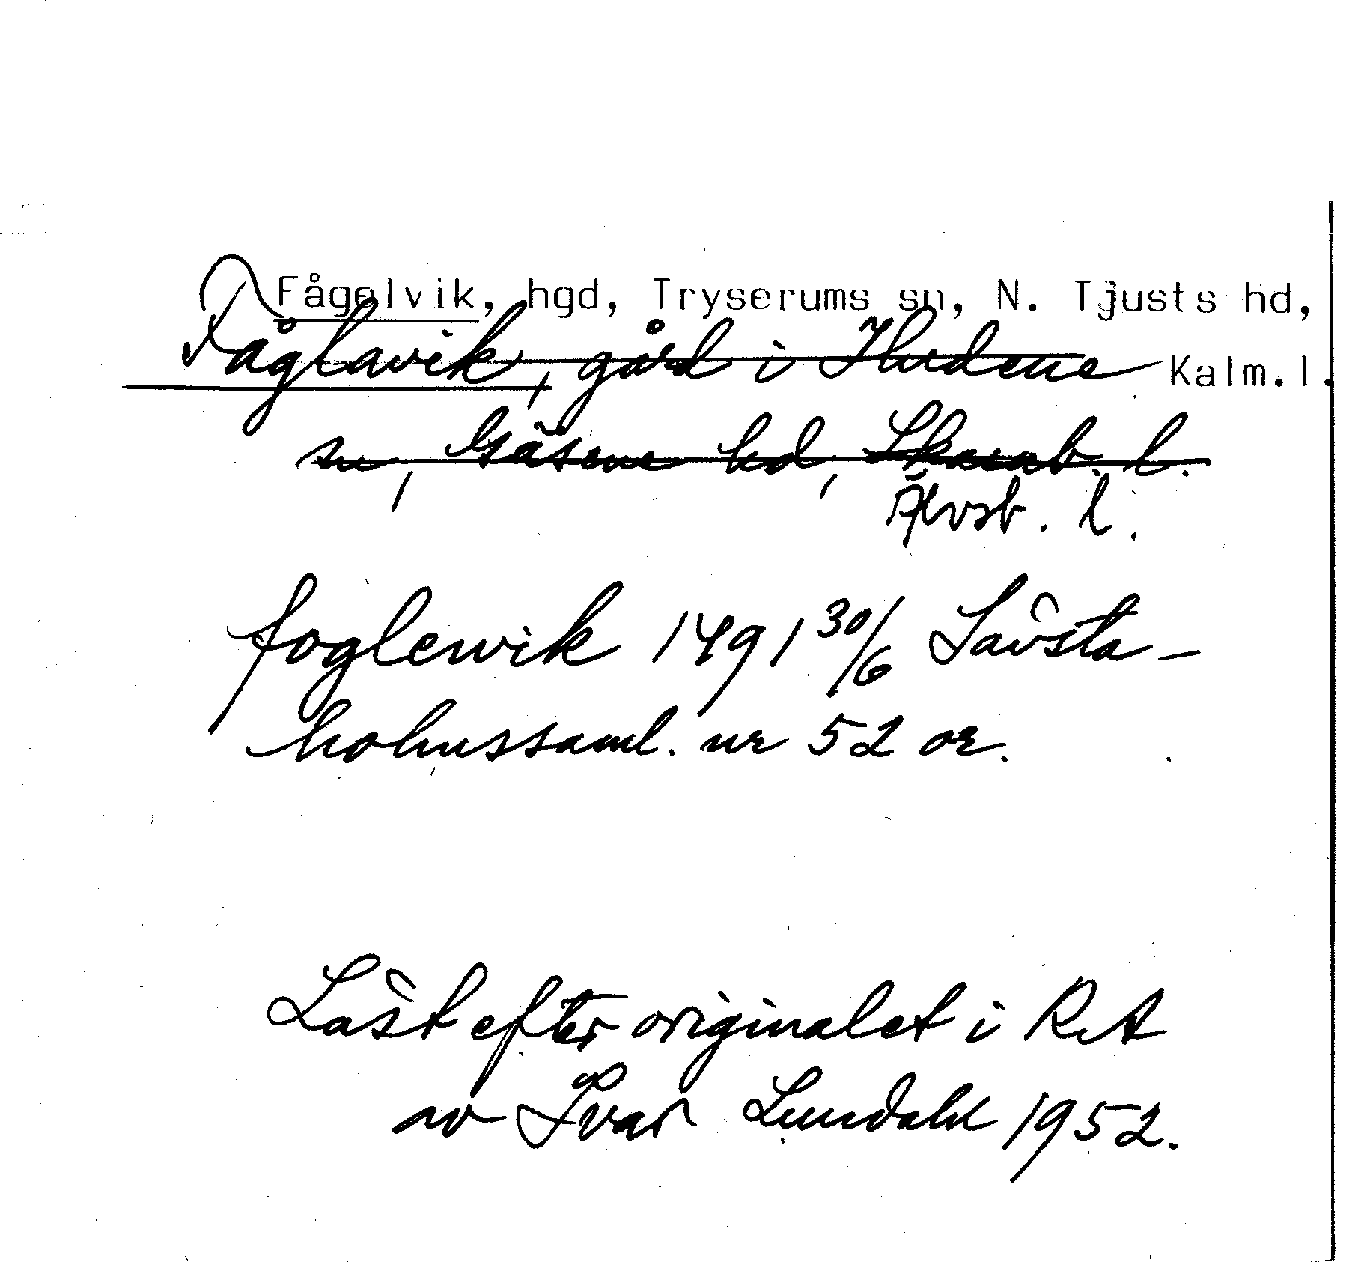 Fågelvik, hgd, Tryserums sn, N. Tjusts hd,
Kalm.l.
Fåglavik, gård i Hudene
sn, Gäsene hd, Skarab. l.
Älvsb. l.
foglewik 1491 30/6 Såvsta-
holmssaml. nr 52 or.
Läst efter originalet i RA
av Ivar Lundahl 1952.